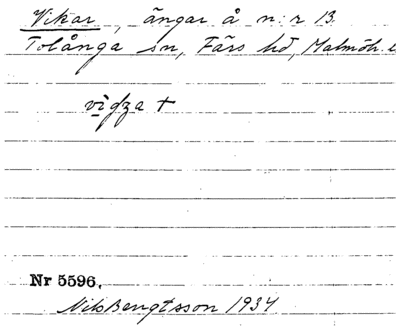 Vikar, ängar å n:r 13.
Tolånga sn, Färs hd, Malmöh.
Nr 5596.
Nils Bengtsson 1934